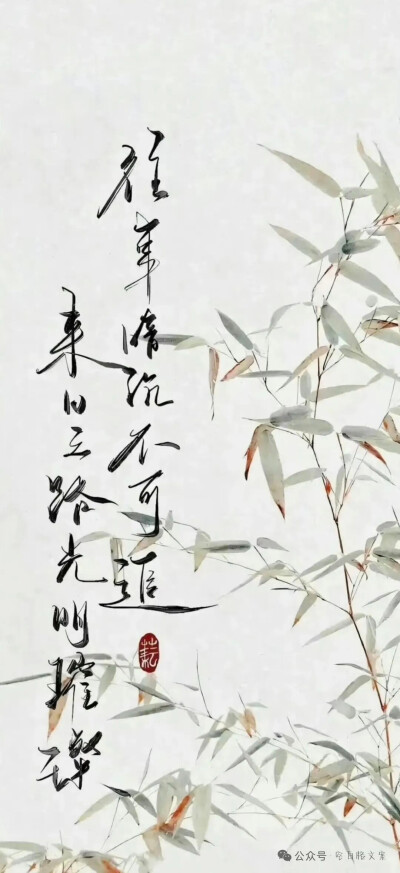 往事暗沉不可追
来日之路光明璀璨
公众号